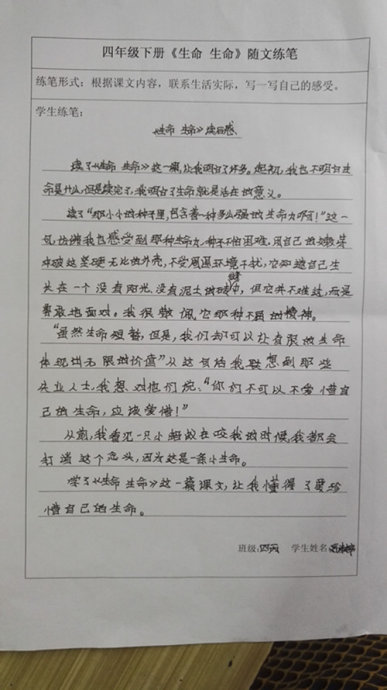 四年级下册《生命 生命》随文练笔
练笔形式：根据课文内容，联系生活实际，写一写自己的感受。
学生练笔：
《生命 生命》读后感
读了《生命 生命》这一篇，让我明白了许多。起初，我也不明白生
命是什么，但是读完了，我明白了生命就是活在的意义。
读了“那小小的种子里，包含着一种多么强的生命力啊！”这一
句，仿佛我也感受到那种生命力，种不怕困难，用自己的
冲破这坚硬无比的外壳，不受周围环境干扰，它知道自己生
长在一个没有阳光、没有泥土的砖缝中，但它并不难过，而是
勇敢地面对。我很敬佩它那种不屈的精神。
“虽然生命短暂，但是，我们却可以让有限的生命
体现出无限的价值”从这句话我联想到那些
失业人士，我想对他们说：“你们不可以不爱惜自
己的生命，应该爱惜！”
从前，我看见一只小蚂蚁在咬我的时候，我都会
打消这个念头，因为这是一条小生命。
学了《生命 生命》这一篇课文，让我懂得了要珍
惜自己的生命。
班级：四 学生姓名：